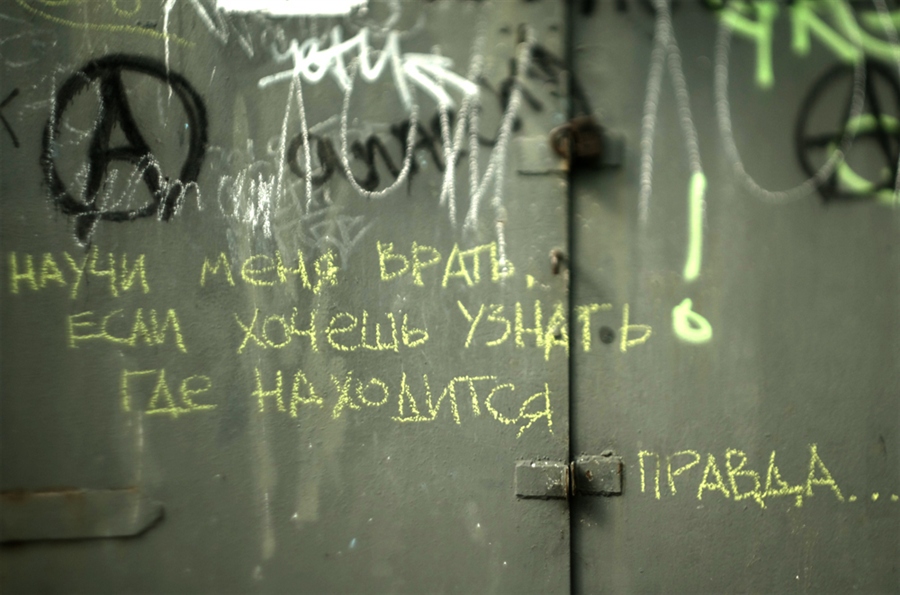 НАУЧИ МЕНЯ ВРАТЬ,
ЕСЛИ ХОЧЕШЬ УЗНАТЬ
ГДЕ НАХОДИТСЯ
ПРАВДА...